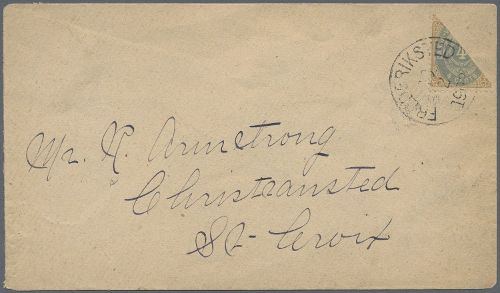 FREDERIKSTED
Mr. R. Armstrong
Christiansted
St- Croix